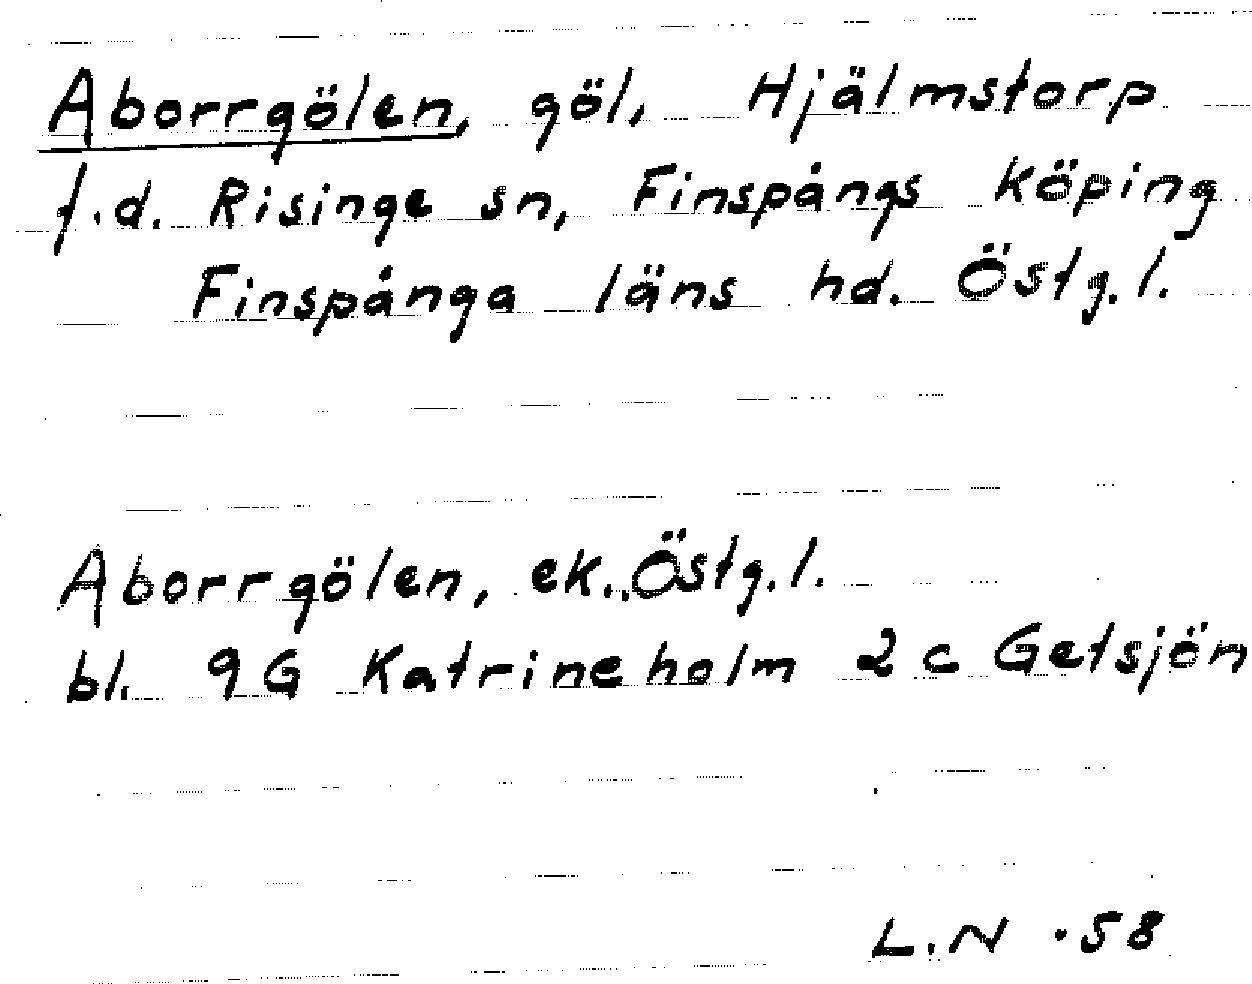 Aborrgölen, göl, Hjälmstorp
f.d. Risinge sn, Finspångs köping
Finspånga läns hd. Östg.l.
Aborrgölen, ek. Östg.l.
bl. 9G Katrineholm 2c Getsjön
L.N .58